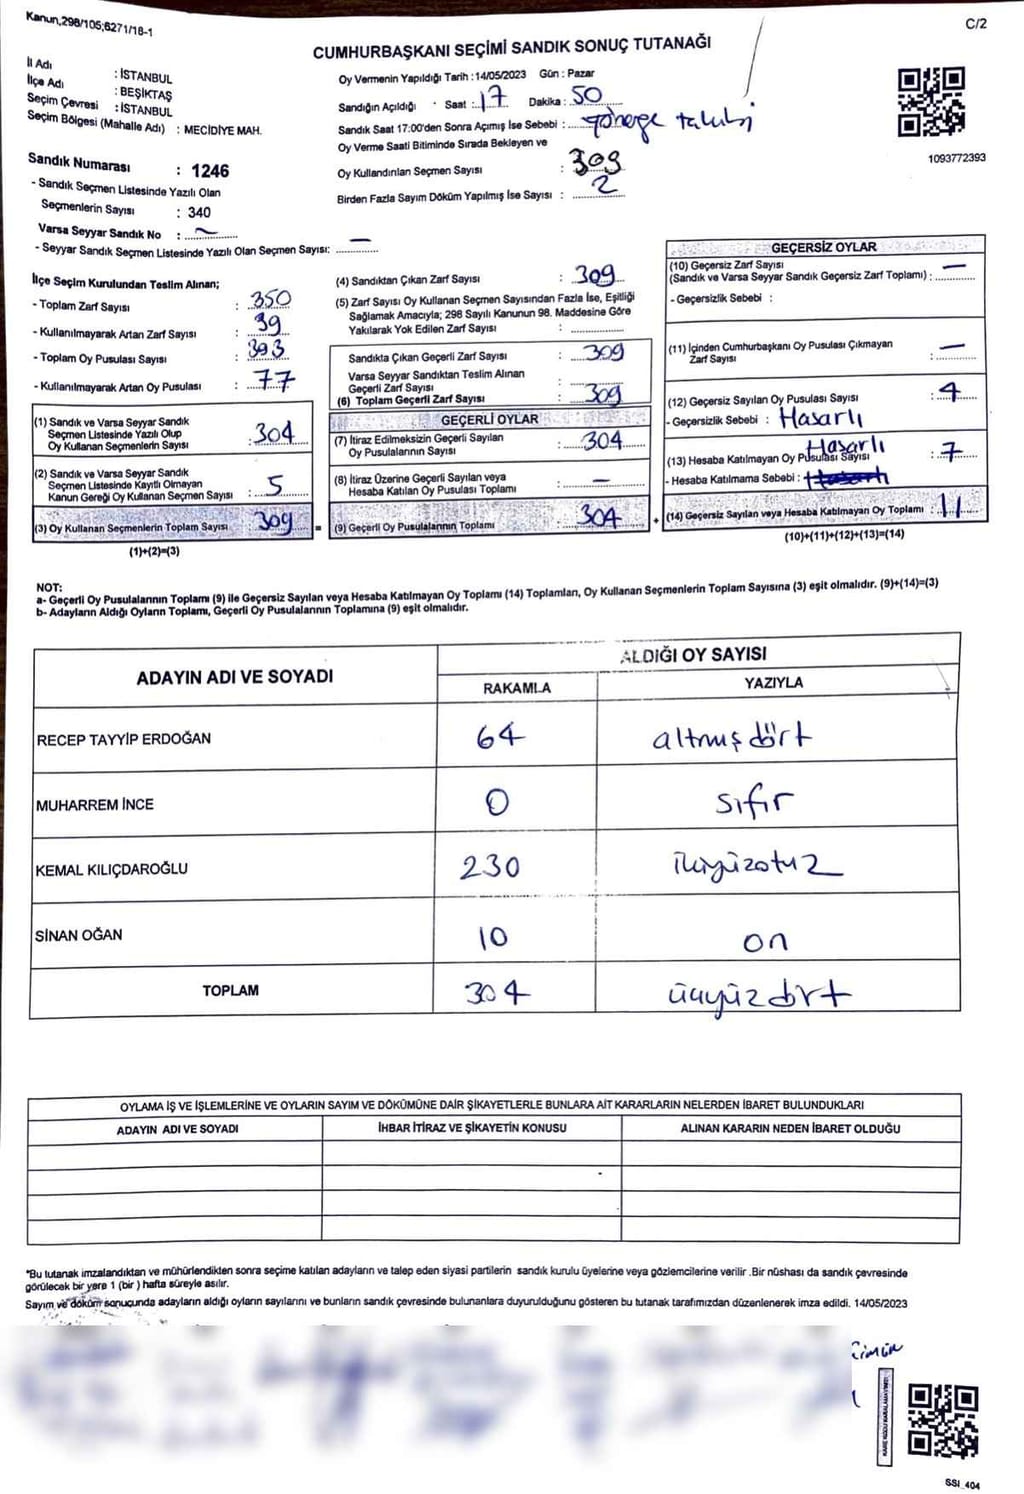 Kanun,298/105;6271/18-1
C/2
CUMHURBAŞKANI SEÇİMİ SANDIK SONUÇ TUTANAĞI
İl Adı : İSTANBUL
İlçe Adı : BEŞİKTAŞ
Seçim Çevresi : İSTANBUL
Seçim Bölgesi (Mahalle Adı) : MECİDİYE MAH.
Oy Vermenin Yapıldığı Tarih : 14/05/2023 Gün : Pazar
Sandığın Açıldığı Saat : 17 Dakika : 50
Sandık Saat 17:00'den Sonra Açımış İse Sebebi :
Oy Verme Saati Bitiminde Sırada Bekleyen ve
Oy Kullandırılan Seçmen Sayısı : 309
Birden Fazla Sayım Döküm Yapılmış İse Sayısı : 2
1093772393
Sandık Numarası : 1246
- Sandık Seçmen Listesinde Yazılı Olan
Seçmenlerin Sayısı : 340
Varsa Seyyar Sandık No : –
- Seyyar Sandık Seçmen Listesinde Yazılı Olan Seçmen Sayısı: –
İlçe Seçim Kurulundan Teslim Alınan;
- Toplam Zarf Sayısı : 350
- Kullanılmayarak Artan Zarf Sayısı : 39
- Toplam Oy Pusulası Sayısı : 393
- Kullanılmayarak Artan Oy Pusulası : 77
(1) Sandık ve Varsa Seyyar Sandık
Seçmen Listesinde Yazılı Olup
Oy Kullanan Seçmenlerin Sayısı : 304
(2) Sandık ve Varsa Seyyar Sandık
Seçmen Listesinde Kayıtlı Olmayan
Kanun Gereği Oy Kullanan Seçmen Sayısı : 5
(3) Oy Kullanan Seçmenlerin Toplam Sayısı : 309 =
(1)+(2)=(3)
(4) Sandıktan Çıkan Zarf Sayısı : 309
(5) Zarf Sayısı Oy Kullanan Seçmen Sayısından Fazla İse, Eşitliği
Sağlamak Amacıyla; 298 Sayılı Kanunun 98. Maddesine Göre
Yakılarak Yok Edilen Zarf Sayısı :
Sandıkta Çıkan Geçerli Zarf Sayısı : 309
Varsa Seyyar Sandıktan Teslim Alınan
Geçerli Zarf Sayısı :
(6) Toplam Geçerli Zarf Sayısı : 309
GEÇERLİ OYLAR
(7) İtiraz Edilmeksizin Geçerli Sayılan
Oy Pusulalarının Sayısı : 304
(8) İtiraz Üzerine Geçerli Sayılan veya
Hesaba Katılan Oy Pusulası Toplamı : –
(9) Geçerli Oy Pusulalarının Toplamı : 304 +
GEÇERSİZ OYLAR
(10) Geçersiz Zarf Sayısı
(Sandık ve Varsa Seyyar Sandık Geçersiz Zarf Toplamı) : –
- Geçersizlik Sebebi :
(11) İçinden Cumhurbaşkanı Oy Pusulası Çıkmayan
Zarf Sayısı : –
(12) Geçersiz Sayılan Oy Pusulası Sayısı : 4
- Geçersizlik Sebebi : Hasarlı
Hasarlı
(13) Hesaba Katılmayan Oy Pusulası Sayısı : 7
- Hesaba Katılmama Sebebi :
(14) Geçersiz Sayılan veya Hesaba Katılmayan Oy Toplamı : 11
(10)+(11)+(12)+(13)=(14)
NOT:
a- Geçerli Oy Pusulalarının Toplamı (9) ile Geçersiz Sayılan veya Hesaba Katılmayan Oy Toplamı (14) Toplamları, Oy Kullanan Seçmenlerin Toplam Sayısına (3) eşit olmalıdır. (9)+(14)=(3)
b- Adayların Aldığı Oyların Toplamı, Geçerli Oy Pusulalarının Toplamına (9) eşit olmalıdır.
ADAYIN ADI VE SOYADI
ALDIĞI OY SAYISI
RAKAMLA YAZIYLA
RECEP TAYYİP ERDOĞAN 64 altmışdört
MUHARREM İNCE 0 sıfır
KEMAL KILIÇDAROĞLU 230 ikiyüzotuz
SİNAN OĞAN 10 on
TOPLAM 304 üçyüzdört
OYLAMA İŞ VE İŞLEMLERİNE VE OYLARIN SAYIM VE DÖKÜMÜNE DAİR ŞİKAYETLERLE BUNLARA AİT KARARLARIN NELERDEN İBARET BULUNDUKLARI
ADAYIN ADI VE SOYADI İHBAR İTİRAZ VE ŞİKAYETİN KONUSU ALINAN KARARIN NEDEN İBARET OLDUĞU
*Bu tutanak imzalandıktan ve mühürlendikten sonra seçime katılan adayların ve talep eden siyasi partilerin sandık kurulu üyelerine veya gözlemcilerine verilir .Bir nüshası da sandık çevresinde
görülecek bir yere 1 (bir ) hafta süreyle asılır.
Sayım ve döküm sonuçunda adayların aldığı oyların sayılarını ve bunların sandık çevresinde bulunanlara duyurulduğunu gösteren bu tutanak tarafımızdan düzenlenerek imza edildi. 14/05/2023
KARE KODU KARALAMAYINIZ!
SSI_404